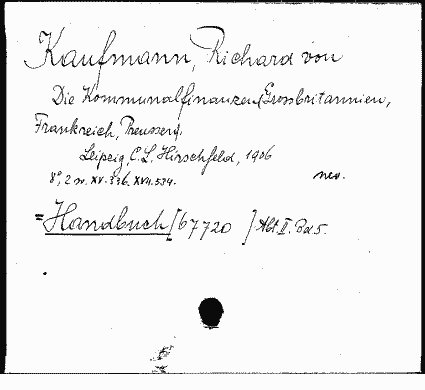 Kaufmann, Richard von
Die Kommunalfinanzen (Grossbritannien,
Frankreich, Preussen).
Leipzig, C. L. Hirschfeld, 1906
8°, 2 v. XV. 336. XVII. 534.
= Handbuch [67720] Abt. II. Bd 5.